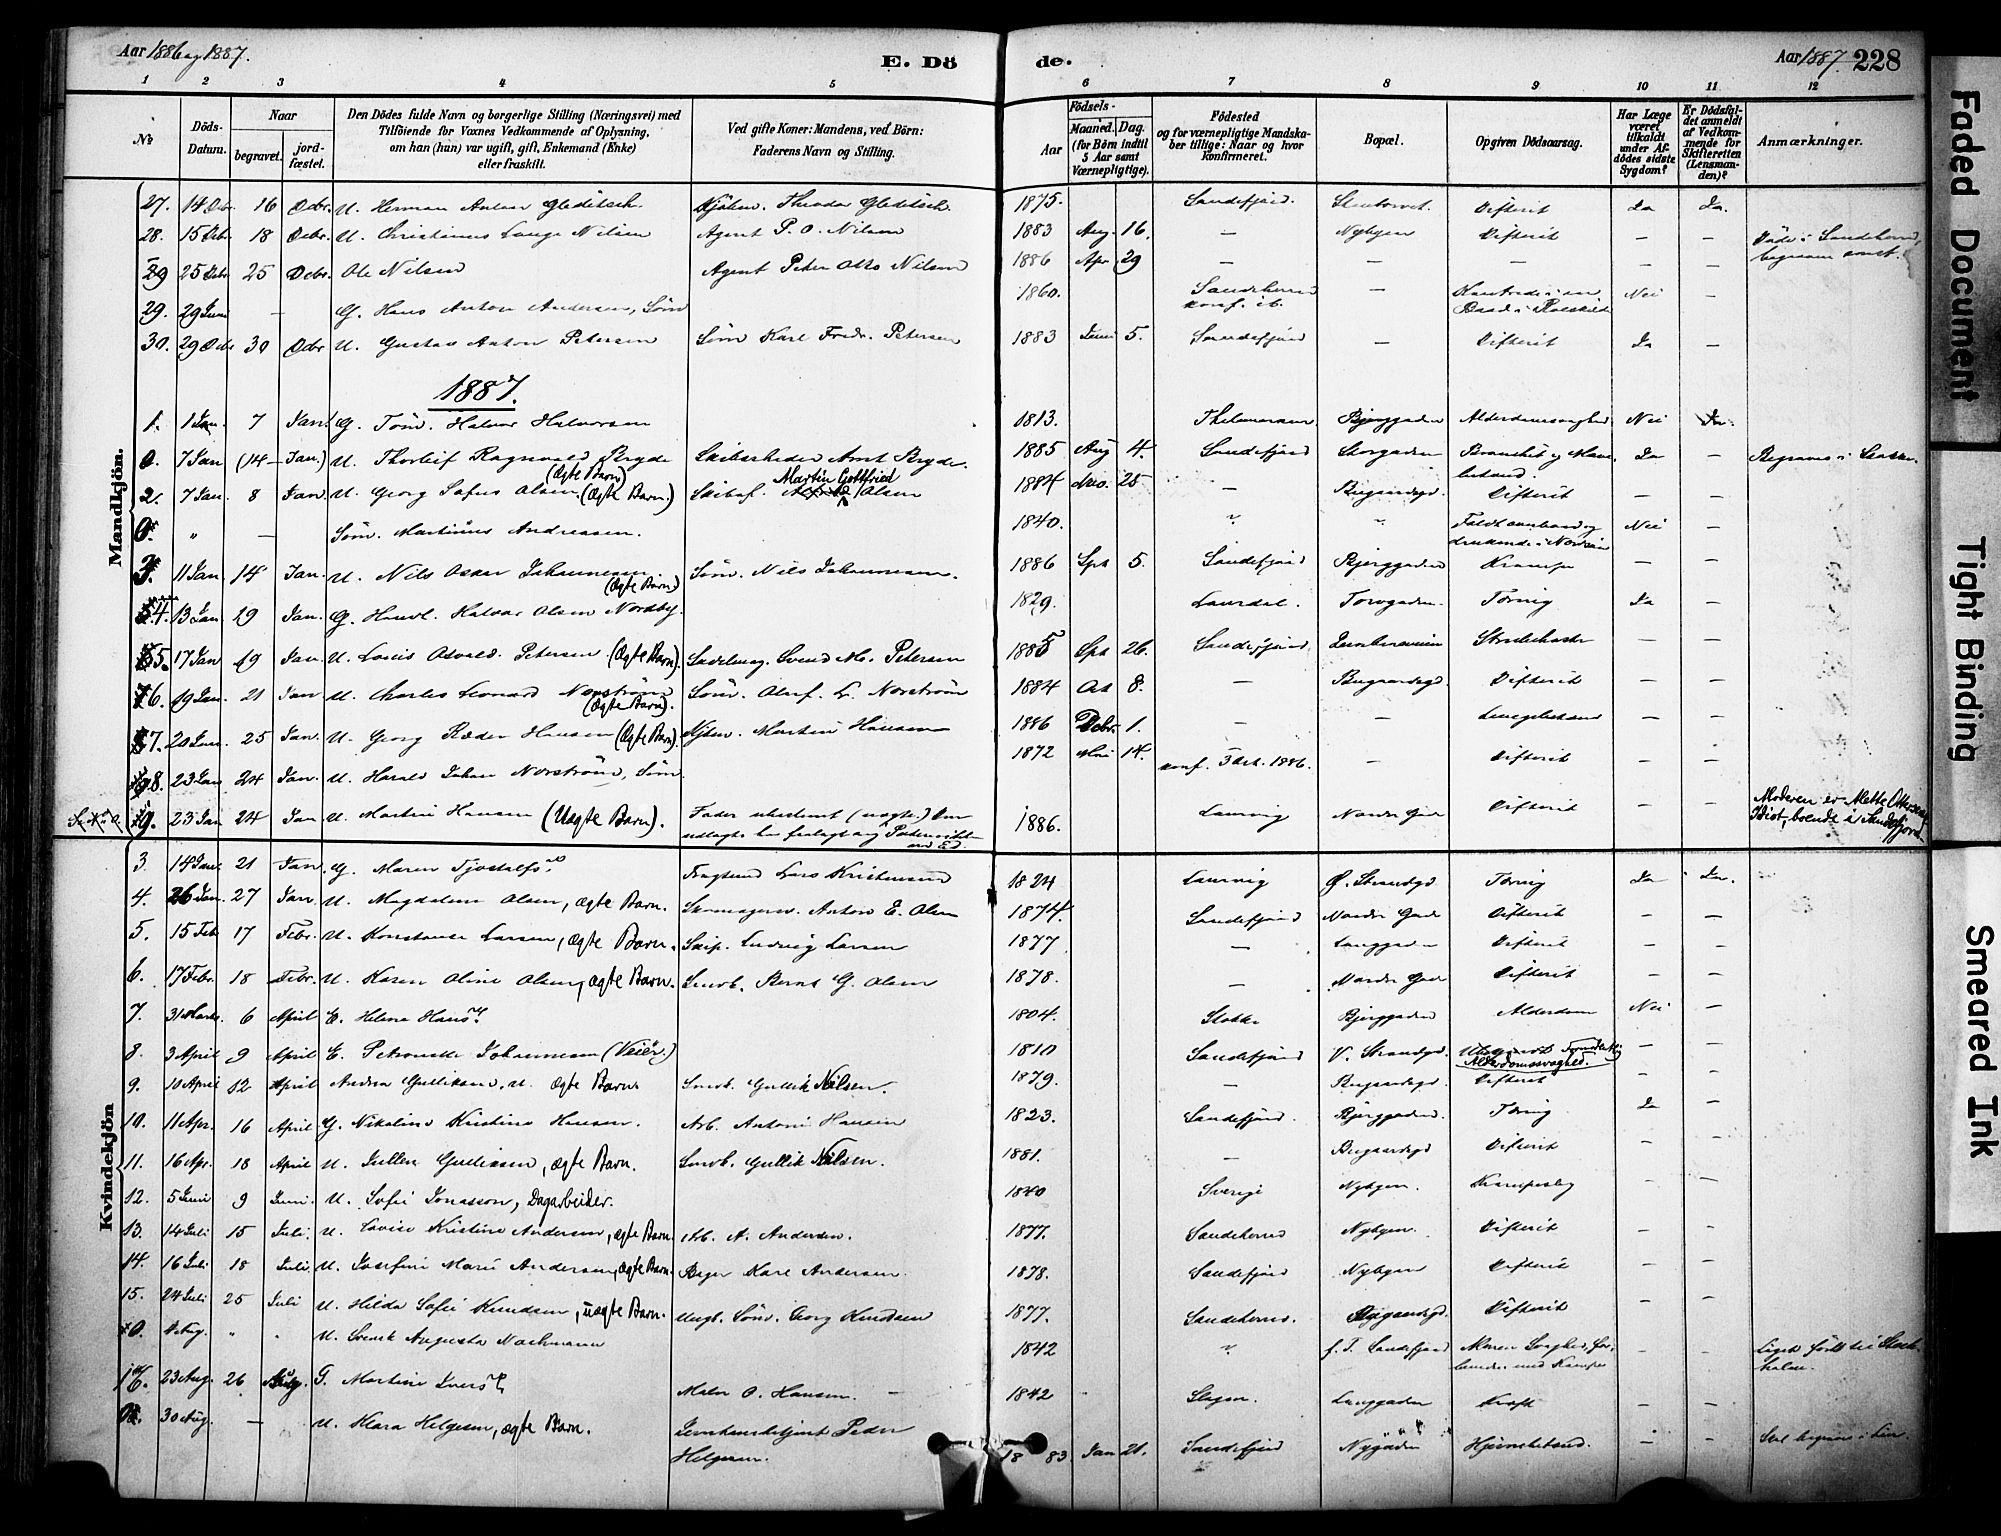 Aar 1886 og 1887.
E. Dö
de.
Aar 1887. 228
1 2 3 4 5 6 7 8 9 10 11 12
No
Döds-Datum.
Naar
begravet.
jord-fæstet.
Den Dödes fulde Navn og borgerlige Stilling (Næringsvei) med
Tilföiende for Voxnes Vedkommende af Oplysning,
om han (hun) var ugift, gift, Enkemand (Enke)
eller fraskilt.
Ved gifte Koner: Mandens, ved Börn:
Faderens Navn og Stilling.
Födsels-
Aar
Maaned. Dag.
(for Börn indtil
5 Aar samt
Værnepligtige).
Födested
og for værnepligtige Mandska-
ber tillige: Naar og hvor
konfirmeret.
Bopæl.
Opgiven Dödsaarsag.
Har Læge
været
tilkaldt
under Af-
dödes sidste
Sygdom?
Er Dödsfal-
det anmeldt
af Vedkom-
mende for
Skifteretten
(Lensman-
den)?
Anmærkninger.
Mandkjön.
27. 14 Dbr 16 Decbr. U. Herman Anton Gleditsch. Kjöbm. Theodor Gleditsch. 1875. Sandefjord. Difterit Ja Ja.
28. 15 Debr 18 Decbr. U. Christinus Lauge Nilsen Agent P. O. Nilsen 1883 Aug. 16. — Nybyen Difterit — — Döde i Sandeherred,
29 25 Debr 25 Decbr. Ole Nilsen Agent Peter Otto Nilsen 1886 Apr 29 — — — — — begraven samst.
29. 29 Juni — G. Hans Anton Andersen, Söm 1860. Sandeherred konf. ib. — Nei —
30. 29 Decbr 30 Decbr U. Gustav Anton Petersen Söm Karl Fredr. Petersen 1883 Juni 5. Sandefjord — Difterit Ja —
1887.
1. 1 Jan. 7 Jan. G. Töm. Halvor Halvorsen 1813. Thelemarken Bjerggaden Alderdomssvaghed Nei Ja.
0. 7 Jan (14— Jan.) U. Thorleif Ragnvald Bryde (Ægte Barn) Skibsrheder Arnt Bryde. 1885 Aug 4. Sandefjord Storgaden Ja — Begraves i Stokke.
2. 7 Jan. 8 Jan U. Georg Sofus Olsen (Ægte Barn.) Skibsf. Martin Gottfried Olsen 1884 Nov. 25 — Bugaardsgd. Difterit — —
0. " — Söm. Martinus Andreassen. 1840. " " Nei —
3. 11 Jan 14 Jan. U. Nils Oskar Johannesen (Ægte Barn) Söm. Nils Johannesen. 1886 Spt 5. Sandefjord Bjerggaden Krampe — —
4. 13 Jan 19 Jan. G. Handl. Halvor Olsen Nordby. 1829. Laurdal. Torvgaden. Tæring Ja —
5. 17 Jan 19 Jan U. Louis Osvald Petersen (Ægte Barn). Sadelmag. Svend M. Petersen 1885 Spt 26. Sandefjord Strubehoste — —
6. 19 Jan. 21 Jan U. Charles Leonard Norström (Ægte Barn). Söm. Oluf L. Norström 1884 Okt 8. — Bugaardsgd. Difterit — —
7. 20 Jan. 25 Jan. U. Georg Ræder Hansen (Ægte Barn). Kjöbm. Martin Hansen 1886 Debr. 1. — — Lungebetænd — —
8. 23 Jan 24 Jan. U. Harald Johan Norström, Söm 1872 Mai 14. konf. 3 Okt. 1886. — Difterit — —
9. 23 Jan 24 Jan U. Martin Hansen (Uægte Barn). Fader ubestemt (uægte.) Den 1886. Laurvig Nordre Gade Difterit — — Moderen er Mette Ottersen
Idiot, boende i Sandefjord
Kvindekjön
3 14 Jan. 21 Jan. G. Maren Tjostolfsd. Lars Kristensen 1824 Laurvig Ø. Strandgd. Tæring Ja Ja.
4. 26 Jan. 27 Jan U. Magdalene Olsen, ægte Barn. Skomagersv. Anton E. Olsen 1874. Sandefjord Nordre Gade Difterit — —
5. 15 Feb 17 Febr. U. Konstanse Larsen, ægte Barn. Skip. Ludvig Larsen 1877 — Langgaden Difterit — —
6. 17 Febr. 18 Febr. U. Karen Oline Olsen, ægte Barn. Snedk. Bernt G. Olsen 1878. — Nordre Gade Difterit — —
7. 31 Marts. 6 April E. Helene Hansd. 1804. Stokke Bjerggaden Alderdom Nei —
8. 3 April 9 April E. Petronelle Johannesen (Veiör.) 1810 Sandefjord V. Strandgd. Alderdomssvaghed. — —
9. 10 April 12 April Andrea Gulliksen, U. ægte Barn Snedk. Gullik Nilsen. 1879. — Bugaardsgd. Difterit — —
10. 11 Apr. 16 April G. Nikoline Kristine Hansen. Arb. Antoni Hansen 1823. Sandefjord. Bjerggaden. Tæring Ja —
11. 16 Apr. 18 April U. Julline Gulliksen, ægte Barn. Snedk. Gullik Nilsen. 1881. — Bugaardsgd Difterit — —
12. 5 Juni 9 Juni. U. Sofie Jonasson, Dagarbeider. 1840 Sverige Nybyen. — —
13. 14 Juli 15 Juli. U. Lovise Kristine Andersen, ægte Barn. Arb. A. Andersen. 1877. Sandeherred Nybyen. Difterit — —
14. 16 Juli 18 Juli. U. Josefine Marie Andersen, ægte Barn. Bager Karl Andersen. 1878. Sandefjord Nybyen Difterit — —
15. 24 Juli 25 Juli U. Hilda Sofie Knudsen, uægte Barn. Ungk. Söm. Georg Knudsen 1877. Sandeherred. Difterit — —
0. Aug. " " U. Svensk Augusta Nachmann 1842 " f. T. Sandefjord — — Liget fört til Stock-
holm.
16. 23 Aug. 26 Aug. G. Martine Iversd. Maler O. Hansen. — 1842 Slagen. Langgaden Kræft — —
0. 30 Aug. — U. Klara Helgesen, ægte Barn. Peder Helgesen. 1883. Jan 21. Sandefjord Nygaden Hjernebetænd. — —
Faded Document
Tight Binding
Smeared Ink